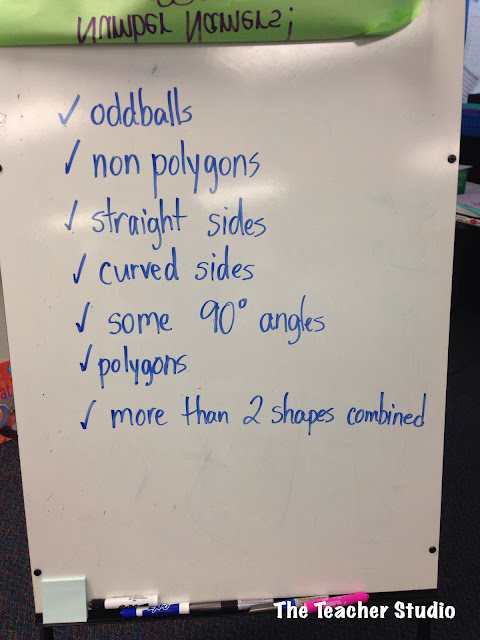 Number Namers!
✓ oddballs
✓ non polygons
✓ straight sides
✓ curved sides
✓ some 90° angles
✓ polygons
✓ more than 2 shapes combined
EXPO
The Teacher Studio